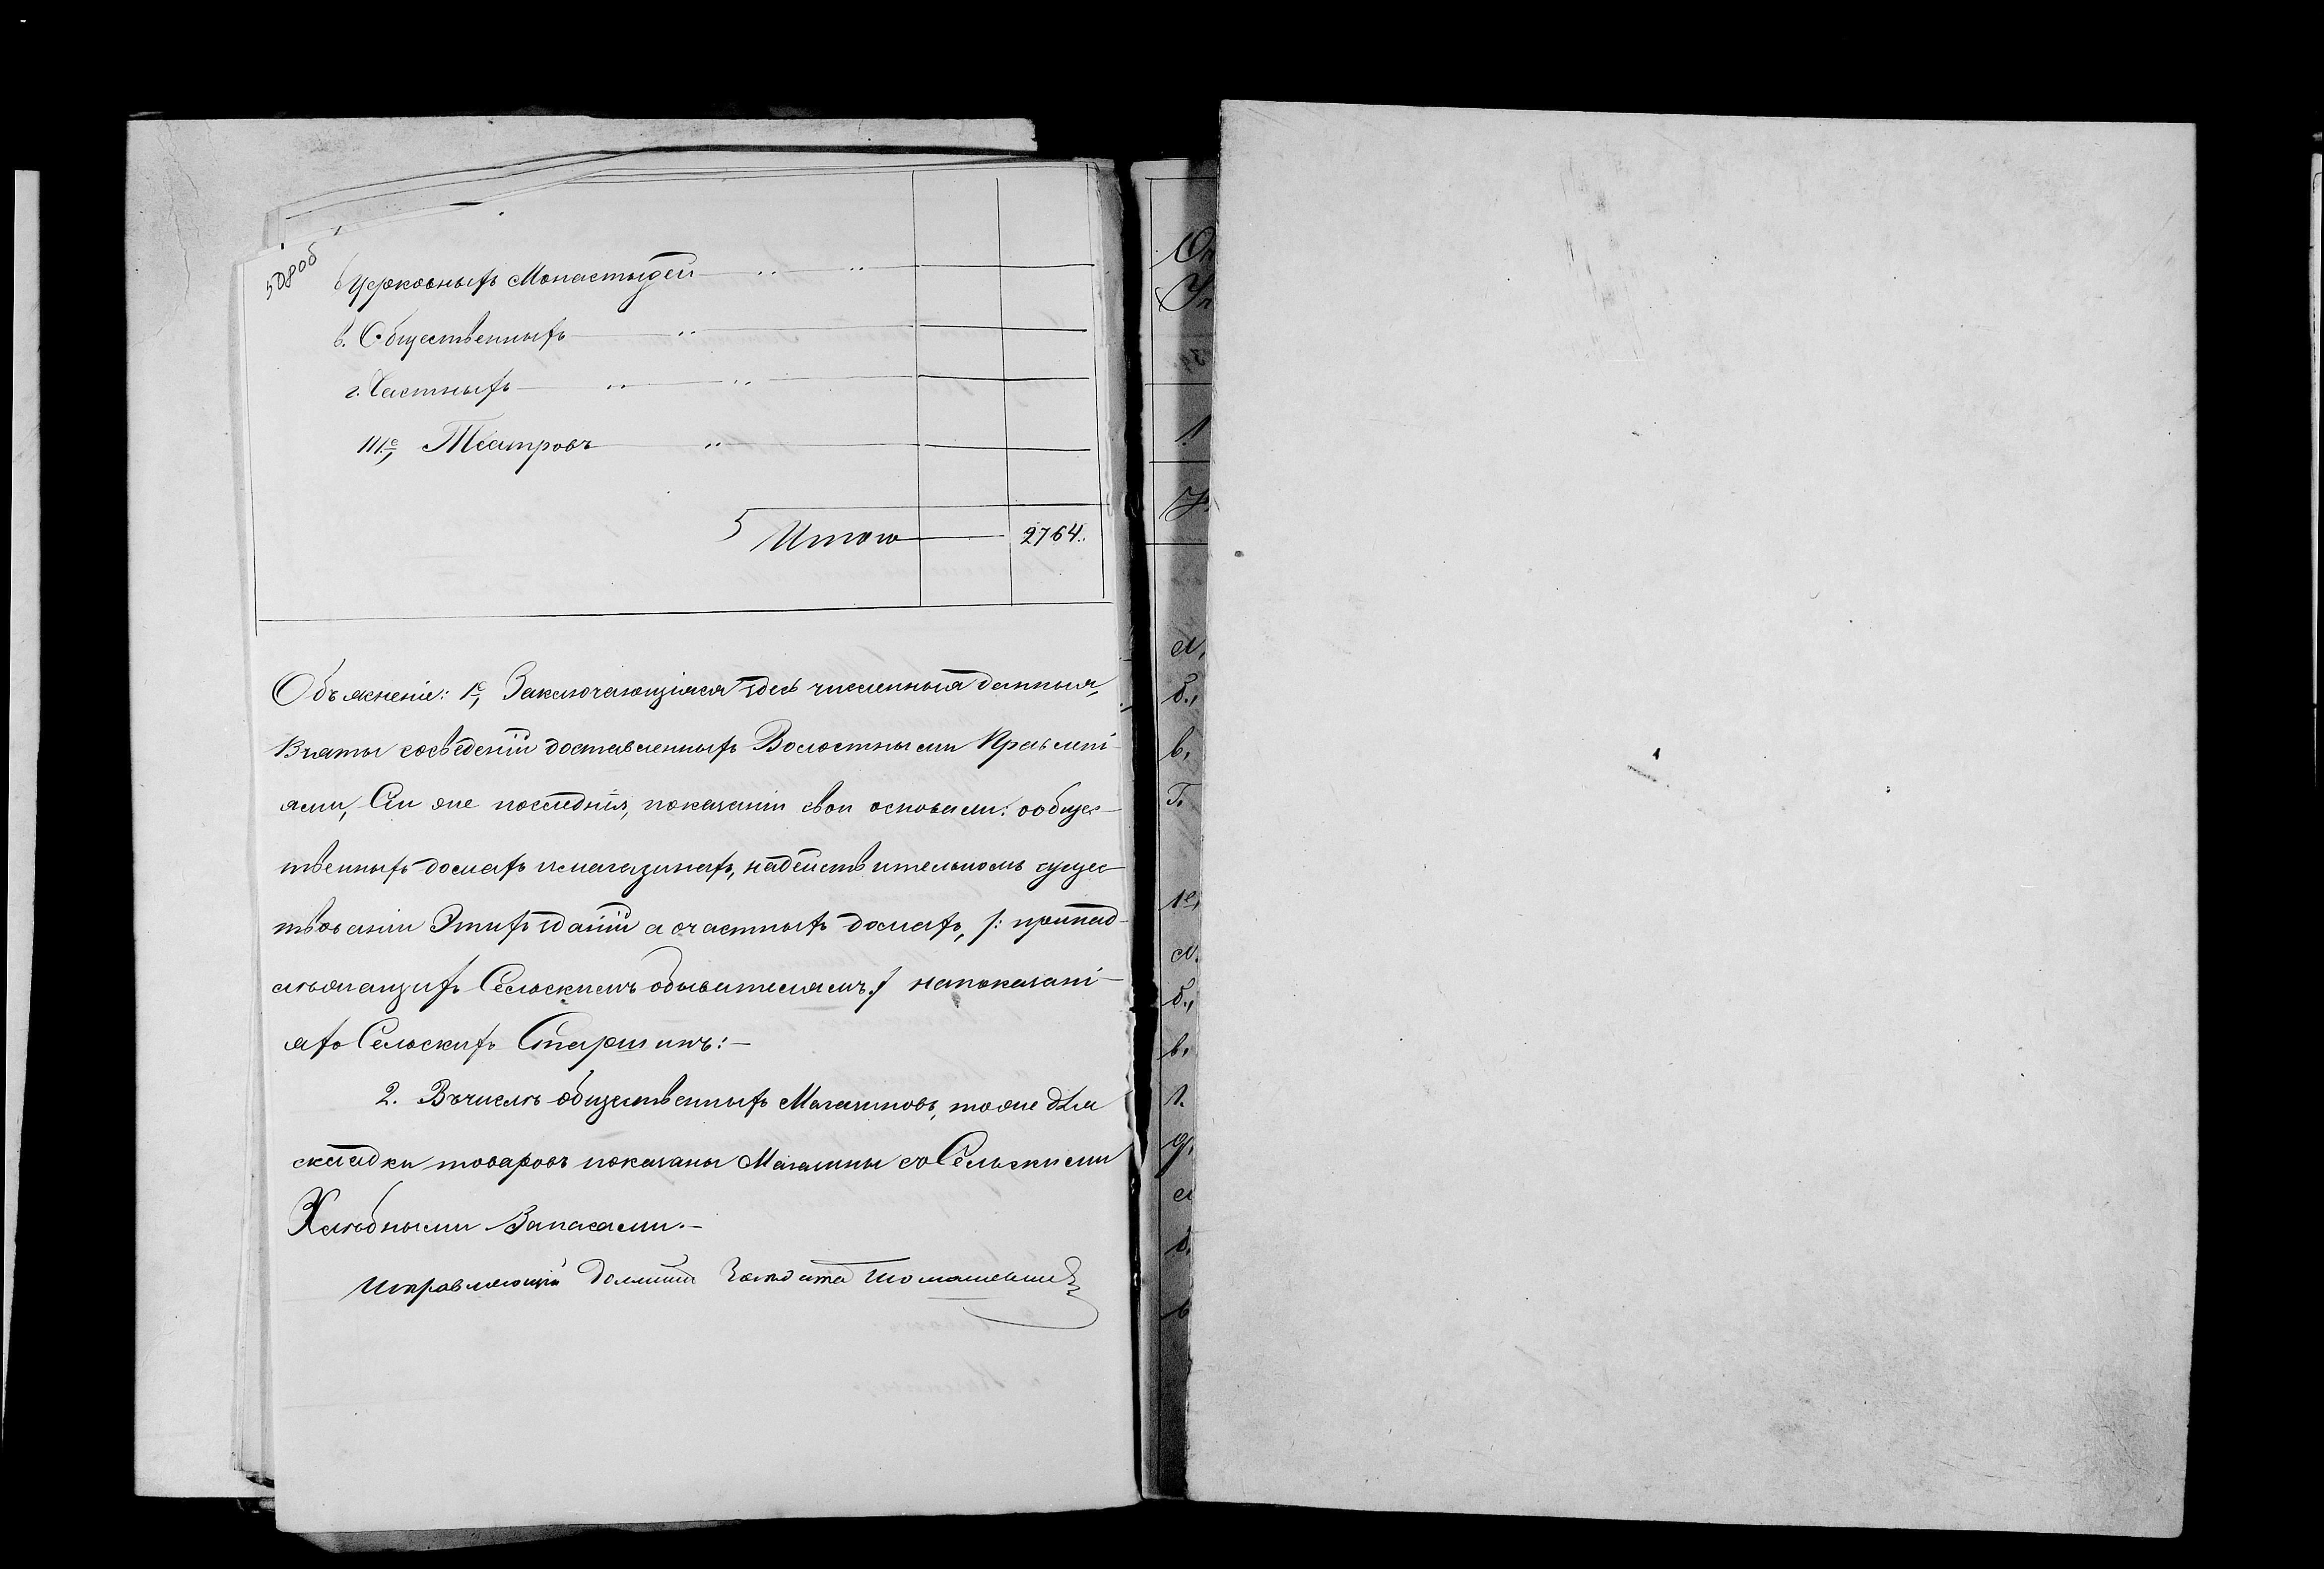 508об
б Церковныхъ Монастырей
в. Общественныхъ
г. Частныхъ
III.е, Театровъ
Итого 2764.
Объясненіе: 1е, Заключающіяся здѣсь численныя данныя,
Взяты съ свѣденій доставленныхъ Волостными Правлені-
ями, Сіи же послѣднія, показанія свои основали: о общес-
твенныхъ домахъ и магазинахъ, на дѣйствительномъ сущес-
твованіи Этихъ зданій а о частныхъ домахъ, /: принад-
лежащихъ Сельскимъ обывателямъ :/ на показані-
яхъ Сельскихъ Старшинъ:-
2. Въ числѣ общественныхъ Магазиновъ, то же для
складки товаровъ показаны Магазины со Сельскими
Хлѣбными Запасами.-
Исправляющій должность
Оп
1
а,
б.,
в,
Г.
1е,
а.
б.,
в,